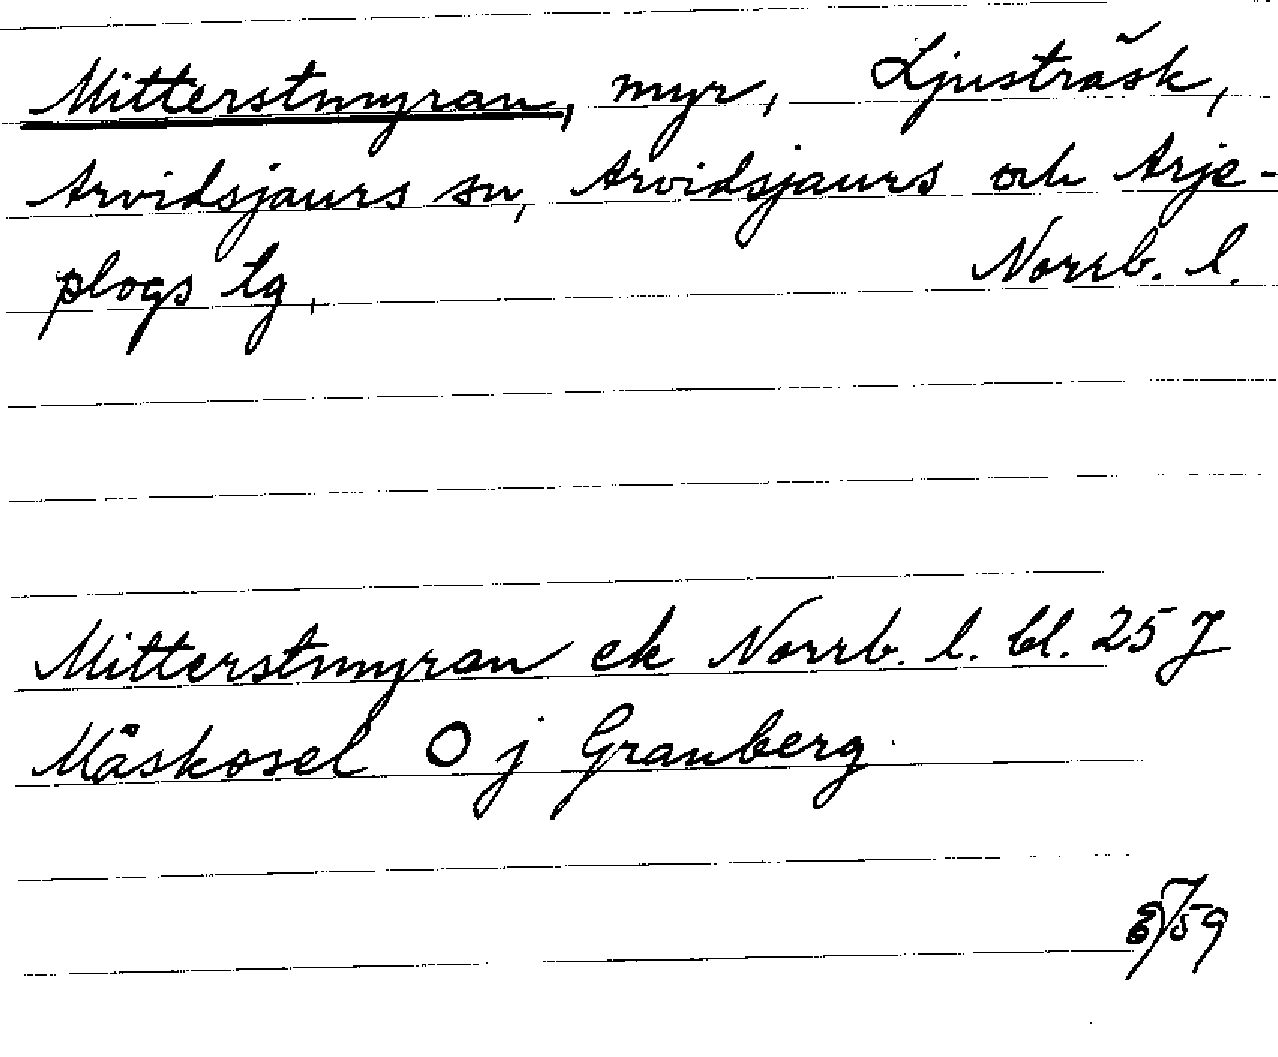 Mitterstmyran, myr, Ljusträsk,
Arvidsjaurs sn, Arvidsjaurs och Arje-
plogs tg, Norrb. l.
Mitterstmyran ek Norrb. l. bl. 25 J
Måskosel O j Granberg.